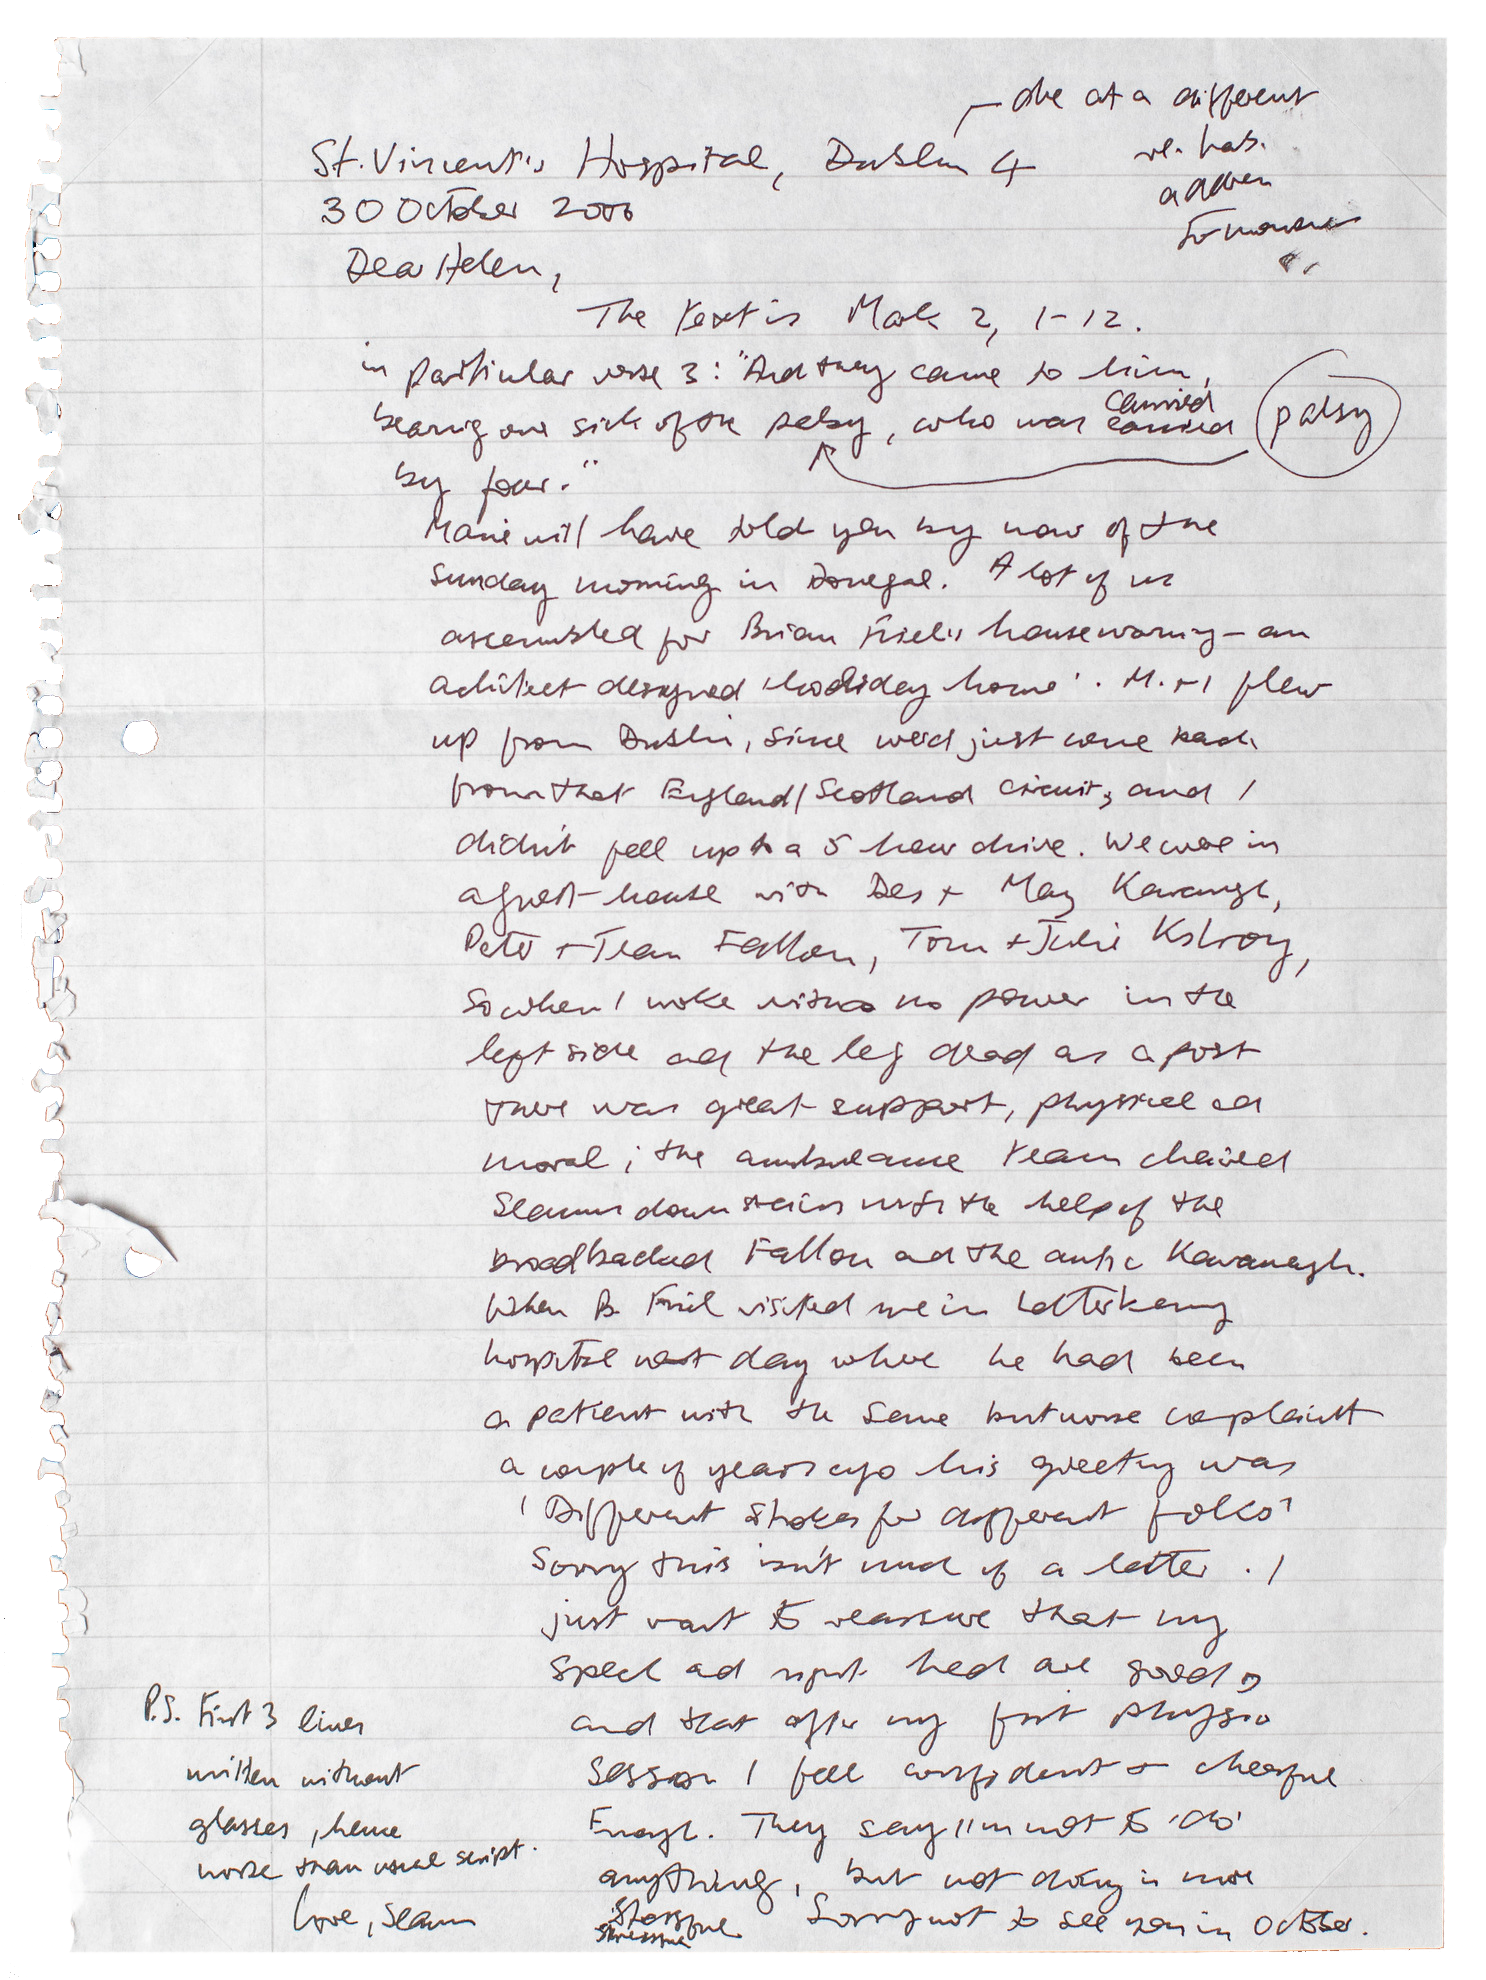 St. Vincent's Hospital, Dublin 4
– due at a different
re. hab.
address
tomorrow
30 October 2006
Dear Helen,
The text is Mark 2, 1-12.
in particular verse 3: "And they came to him,
bearing one sick of the palsy, who was carried
carried
palsy
by four."
Marie will have told you by now of the
Sunday morning in Donegal. A lot of us
assembled for Brian Friel's housewarming – an
architect designed 'holiday home'. M. + I flew
up from Dublin, since we'd just come back
from that England/Scotland circuit, and I
didn't feel up to a 5 hour drive. We were in
a guest-house with Des + Mary Kavanagh,
Peter + Jean Fallon, Tom + Julie Kilroy,
So when I woke with no power in the
left side and the leg dead as a post
there was great support, physical and
moral; the ambulance team chaired
Seamus down stairs with the help of the
broadbacked Fallon and the antic Kavanagh.
When B. Friel visited me in Letterkenny
hospital next day where he had been
a patient with the same but worse complaint
a couple of years ago his greeting was
'Different strokes for different folks'
Sorry this isn't much of a letter. I
just want to reassure that my
speech and right hand are good,
and that after my first physio
session I feel confident + cheerful
Enough. They say I'm not to 'do'
anything, but not doing is more
stressful
stressful
Sorry not to see you in October.
P.S. First 3 lines
written without
glasses, hence
worse than usual script.
Love, Seamus